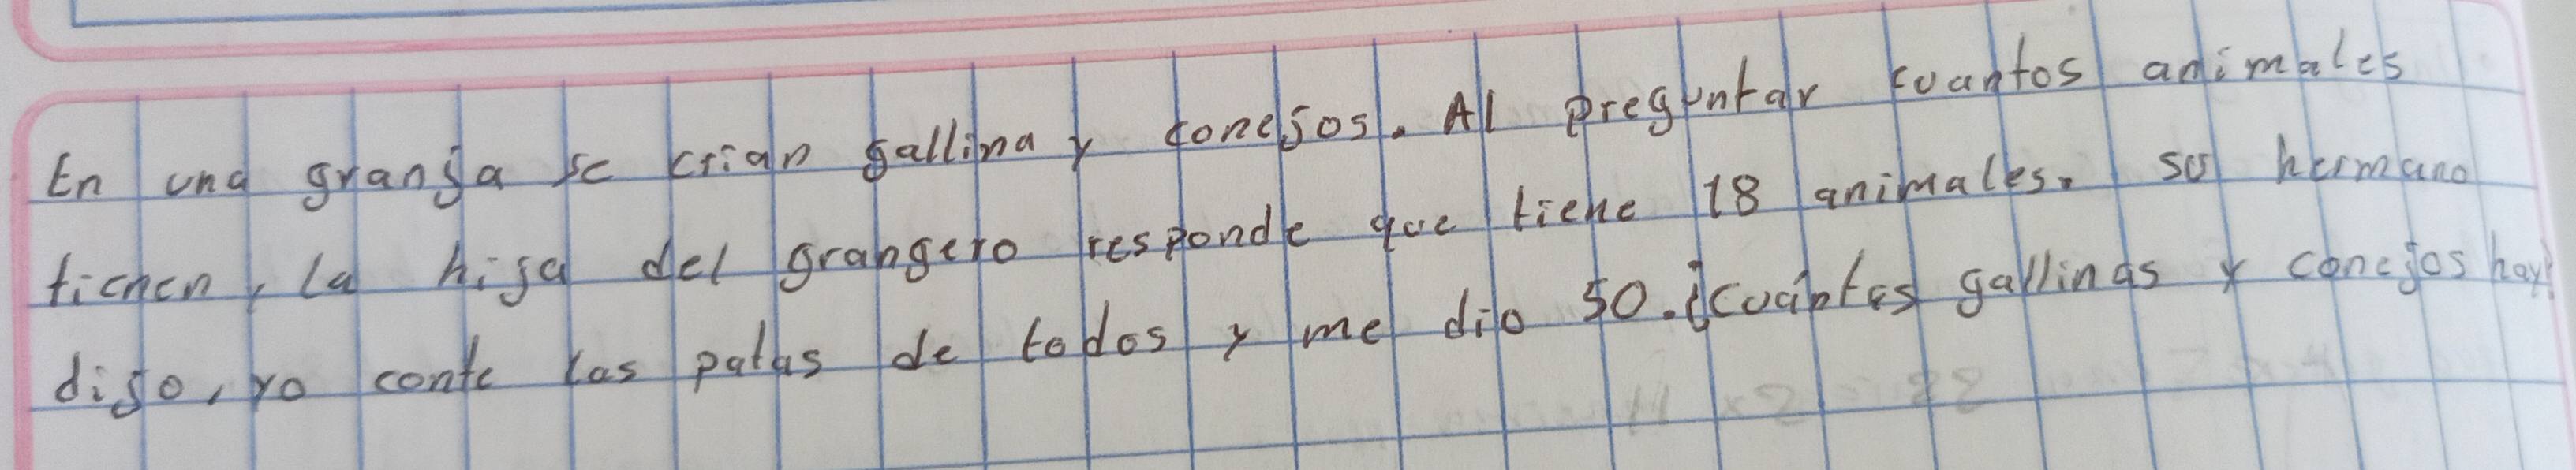 En una granja se crian gallina y conejos. Al preguntar cuantos animales
tienen, la hija del grangero responde que tiene 18 animales. su hermano
dijo, yo conte las patas de todos y me dio 50. ¿cuántas gallinas y conejos hay?